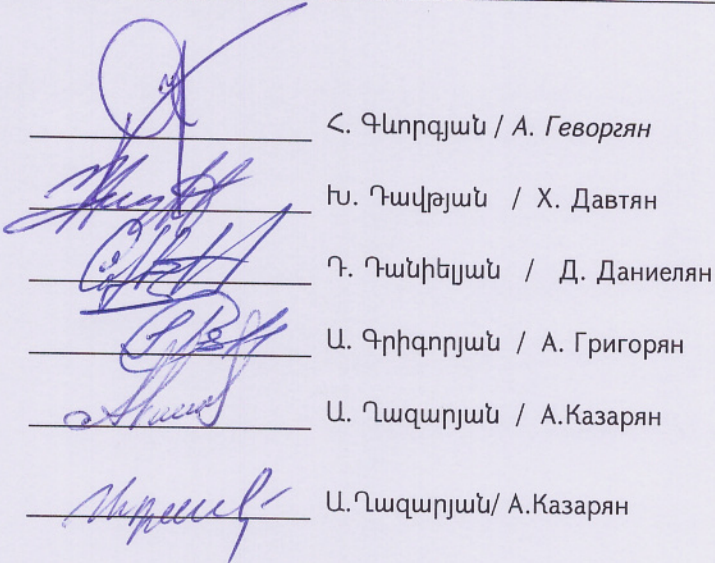 Հ. Գևորգյան / А. Геворгян
Խ. Դավթյան / Х. Давтян
Դ. Դանիելյան / Д. Даниелян
Ա. Գրիգորյան / А. Григорян
Ա. Ղազարյան / А.Казарян
Ա.Ղազարյան/ А.Казарян